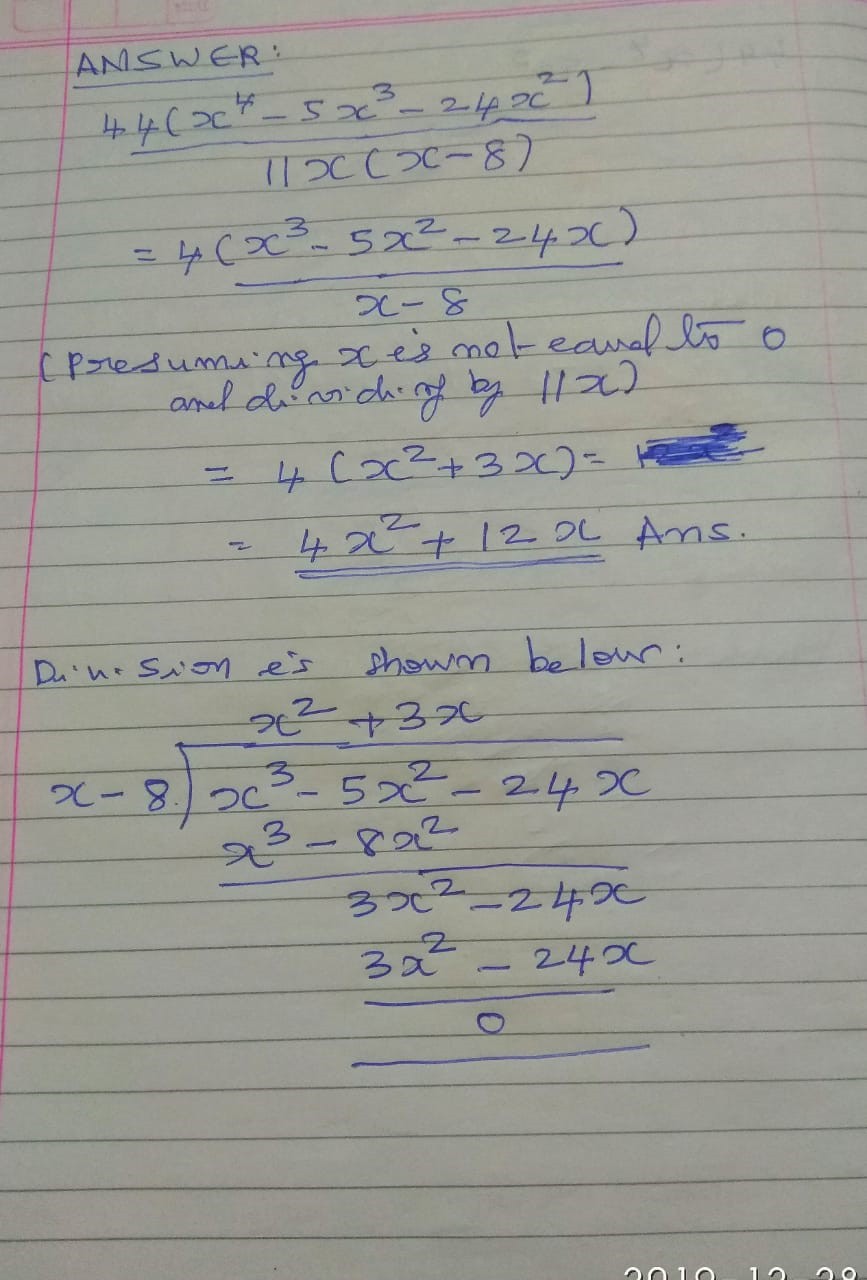 ANSWER:
44(x⁴ - 5x³ - 24x²)
11x(x-8)
= 4(x³ - 5x² - 24x)
x - 8
(Presuming x is not equal to 0
and dividing by 11x)
= 4(x² + 3x) =
= 4x² + 12x Ans.
Division is shown below:
x² + 3x
x - 8) x³ - 5x² - 24x
x³ - 8x²
3x² - 24x
3x² - 24x
0